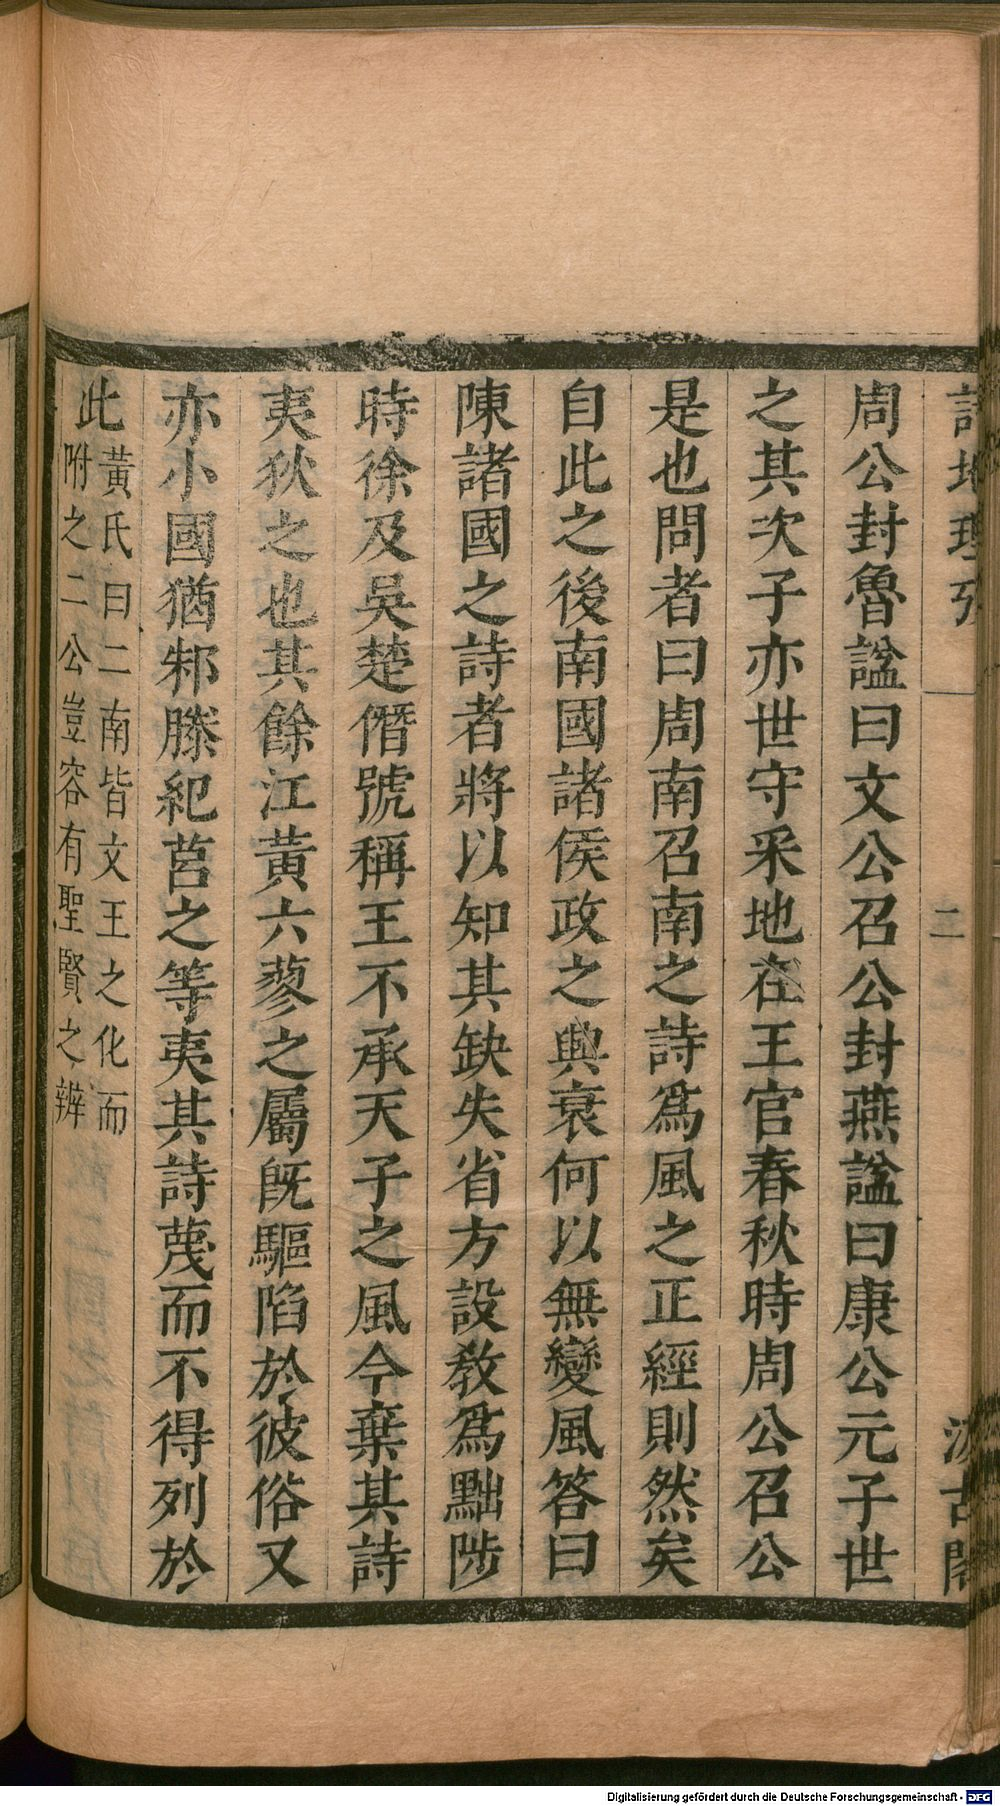 詩地理攷
二
汲古閣
周公封魯諡曰文公召公封燕諡曰康公元子世
之其次子亦世守采地在王官春秋時周公召公
是也問者曰周南召南之詩爲風之正經則然矣
自此之後南國諸侯政之興衰何以無變風答曰
陳諸國之詩者將以知其缺失省方設教爲黜陟
時徐及吳楚僭號稱王不承天子之風今棄其詩
夷狄之也其餘江黃六蓼之屬旣驅陷於彼俗又
亦小國猶邾滕紀莒之等夷其詩蔑而不得列於
此
黃氏曰二南皆文王之化而
附之二公豈容有聖賢之辨
Digitalisierung gefördert durch die Deutsche Forschungsgemeinschaft - DFG